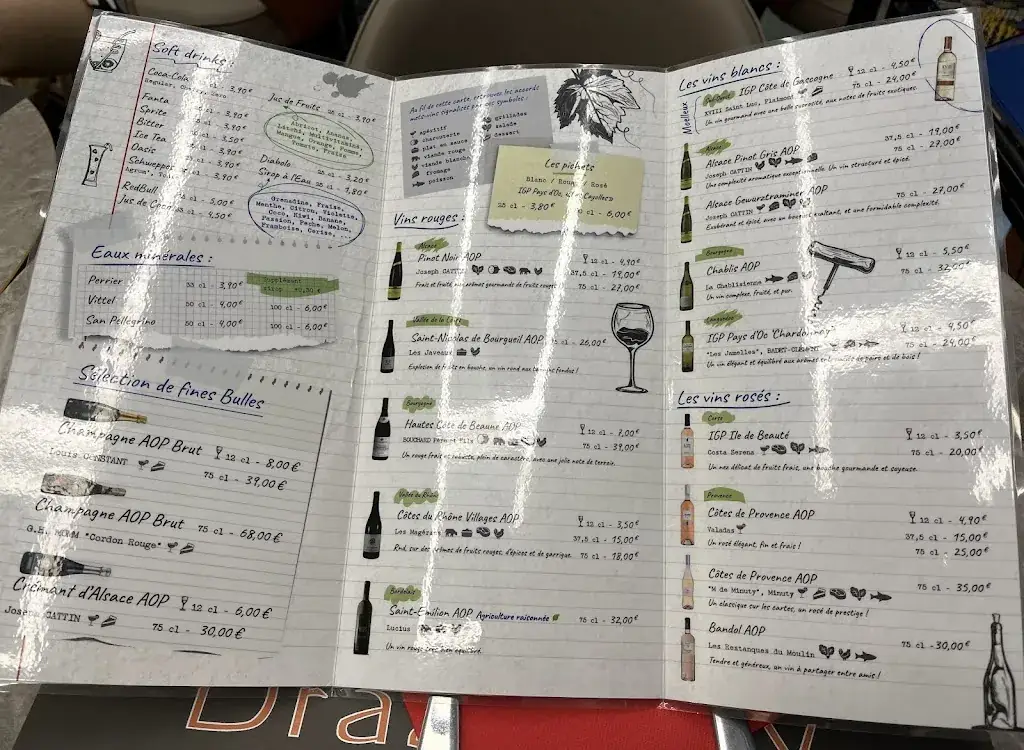 Soft drinks :
Coca-Cola
33 cl - 3,90€
Fanta - 3,90€
Sprite - 3,90€
Bitter - 3,50€
Ice Tea - 3,90€
Oasis - 3,90€
Schweppes - 3,90€
RedBull - 5,00€
Jus de - 4,50€
Jus de Fruits 25 cl - 3,90€
Abricot, Ananas,
Multivitaminé,
Mangue, Orange, Pomme,
Tomate, Fraise
Diabolo 25 cl - 3,20€
Sirop à l'Eau 25 cl - 1,80€
Grenadine, Fraise,
Menthe, Citron, Violette,
Coco, Kiwi, Banane,
Passion, Pêche, Melon,
Framboise, Cerise, ...
Eaux minérales :
Perrier 33 cl - 3,90€
Supplément
sirop
Vittel 50 cl - 4,00€ 100 cl - 6,00€
San Pellegrino 50 cl - 4,00€ 100 cl - 6,00€
Sélection de fines Bulles
Champagne AOP Brut 12 cl - 8,00€
Louis CONSTANT 75 cl - 39,00€
Champagne AOP Brut 75 cl - 68,00€
G.H. MUMM "Cordon Rouge"
Crémant d'Alsace AOP 12 cl - 6,00€
Joseph CATTIN 75 cl - 30,00€
Au fil de cette carte, retrouvez les accords
mets-vins signalés par ces symboles :
apéritifs
grillades
charcuterie
salade
plat en sauce
dessert
viande rouge
viande blanche
fromage
poisson
Les pichets
Blanc / Rouge / Rosé
IGP Pays d'Oc,
25 cl - 3,80€ 50 cl - 6,00€
Vins rouges :
Alsace
Pinot Noir AOP 12 cl - 4,90€
Joseph CATTIN 37,5 cl - 19,00€
Frais et fruité, aux arômes gourmands de fruits rouges. 75 cl - 27,00€
Vallée de la Loire
Saint-Nicolas de Bourgueil AOP 75 cl - 26,00€
Les Javeaux
Explosion de fruits en bouche, un vin rond aux tanins fondus !
Bourgogne
Hautes Côte de Beaune AOP 12 cl - 7,00€
BOUCHARD Père et Fils 75 cl - 39,00€
Un rouge frais et robuste, plein de caractère, avec une jolie note de terroir.
Vallée du Rhône
Côtes du Rhône Villages AOP 12 cl - 3,50€
Les Magérans 37,5 cl - 15,00€
Rond, sur des arômes de fruits rouges, d'épices et de garrigue. 75 cl - 18,00€
Bordelais
Saint-Emilion AOP Agriculture raisonnée 75 cl - 32,00€
Lucius
Un vin rouge très bien équilibré.
Les vins blancs :
Moelleux
IGP Côte de Gascogne 12 cl - 4,50€
XVIII Saint Luc, Plaimont 75 cl - 24,00€
Un vin gourmand avec une belle sucrosité, aux notes de fruits exotiques.
Alsace
Alsace Pinot Gris AOP 37,5 cl - 19,00€
Joseph CATTIN 75 cl - 27,00€
Une complexité aromatique exceptionnelle. Un vin structuré et épicé.
Alsace Gewurztraminer AOP 75 cl - 27,00€
Joseph CATTIN
Exubérant et épicé, avec un bouquet exaltant, et une formidable complexité.
Bourgogne
Chablis AOP 12 cl - 5,50€
La Chablisienne 75 cl - 32,00€
Un vin complexe, fruité, et pur.
Languedoc
IGP Pays d'Oc "Chardonnay" 12 cl - 4,50€
"Les Jamelles", BADET-CLÉMENT 75 cl - 24,00€
Un vin élégant et équilibré aux arômes de poire et de bois !
Les vins rosés :
Corse
IGP Ile de Beauté 12 cl - 3,50€
Costa Serena 75 cl - 20,00€
Un nez délicat de fruits frais, une bouche gourmande et soyeuse.
Provence
Côtes de Provence AOP 12 cl - 4,90€
Valadas 37,5 cl - 15,00€
Un rosé élégant, fin et frais ! 75 cl - 25,00€
Côtes de Provence AOP 75 cl - 35,00€
"M de Minuty", Minuty
Un classique sur les cartes, un rosé de prestige !
Bandol AOP 75 cl - 30,00€
Les Restanques du Moulin
Tendre et généreux, un vin à partager entre amis !
Dra